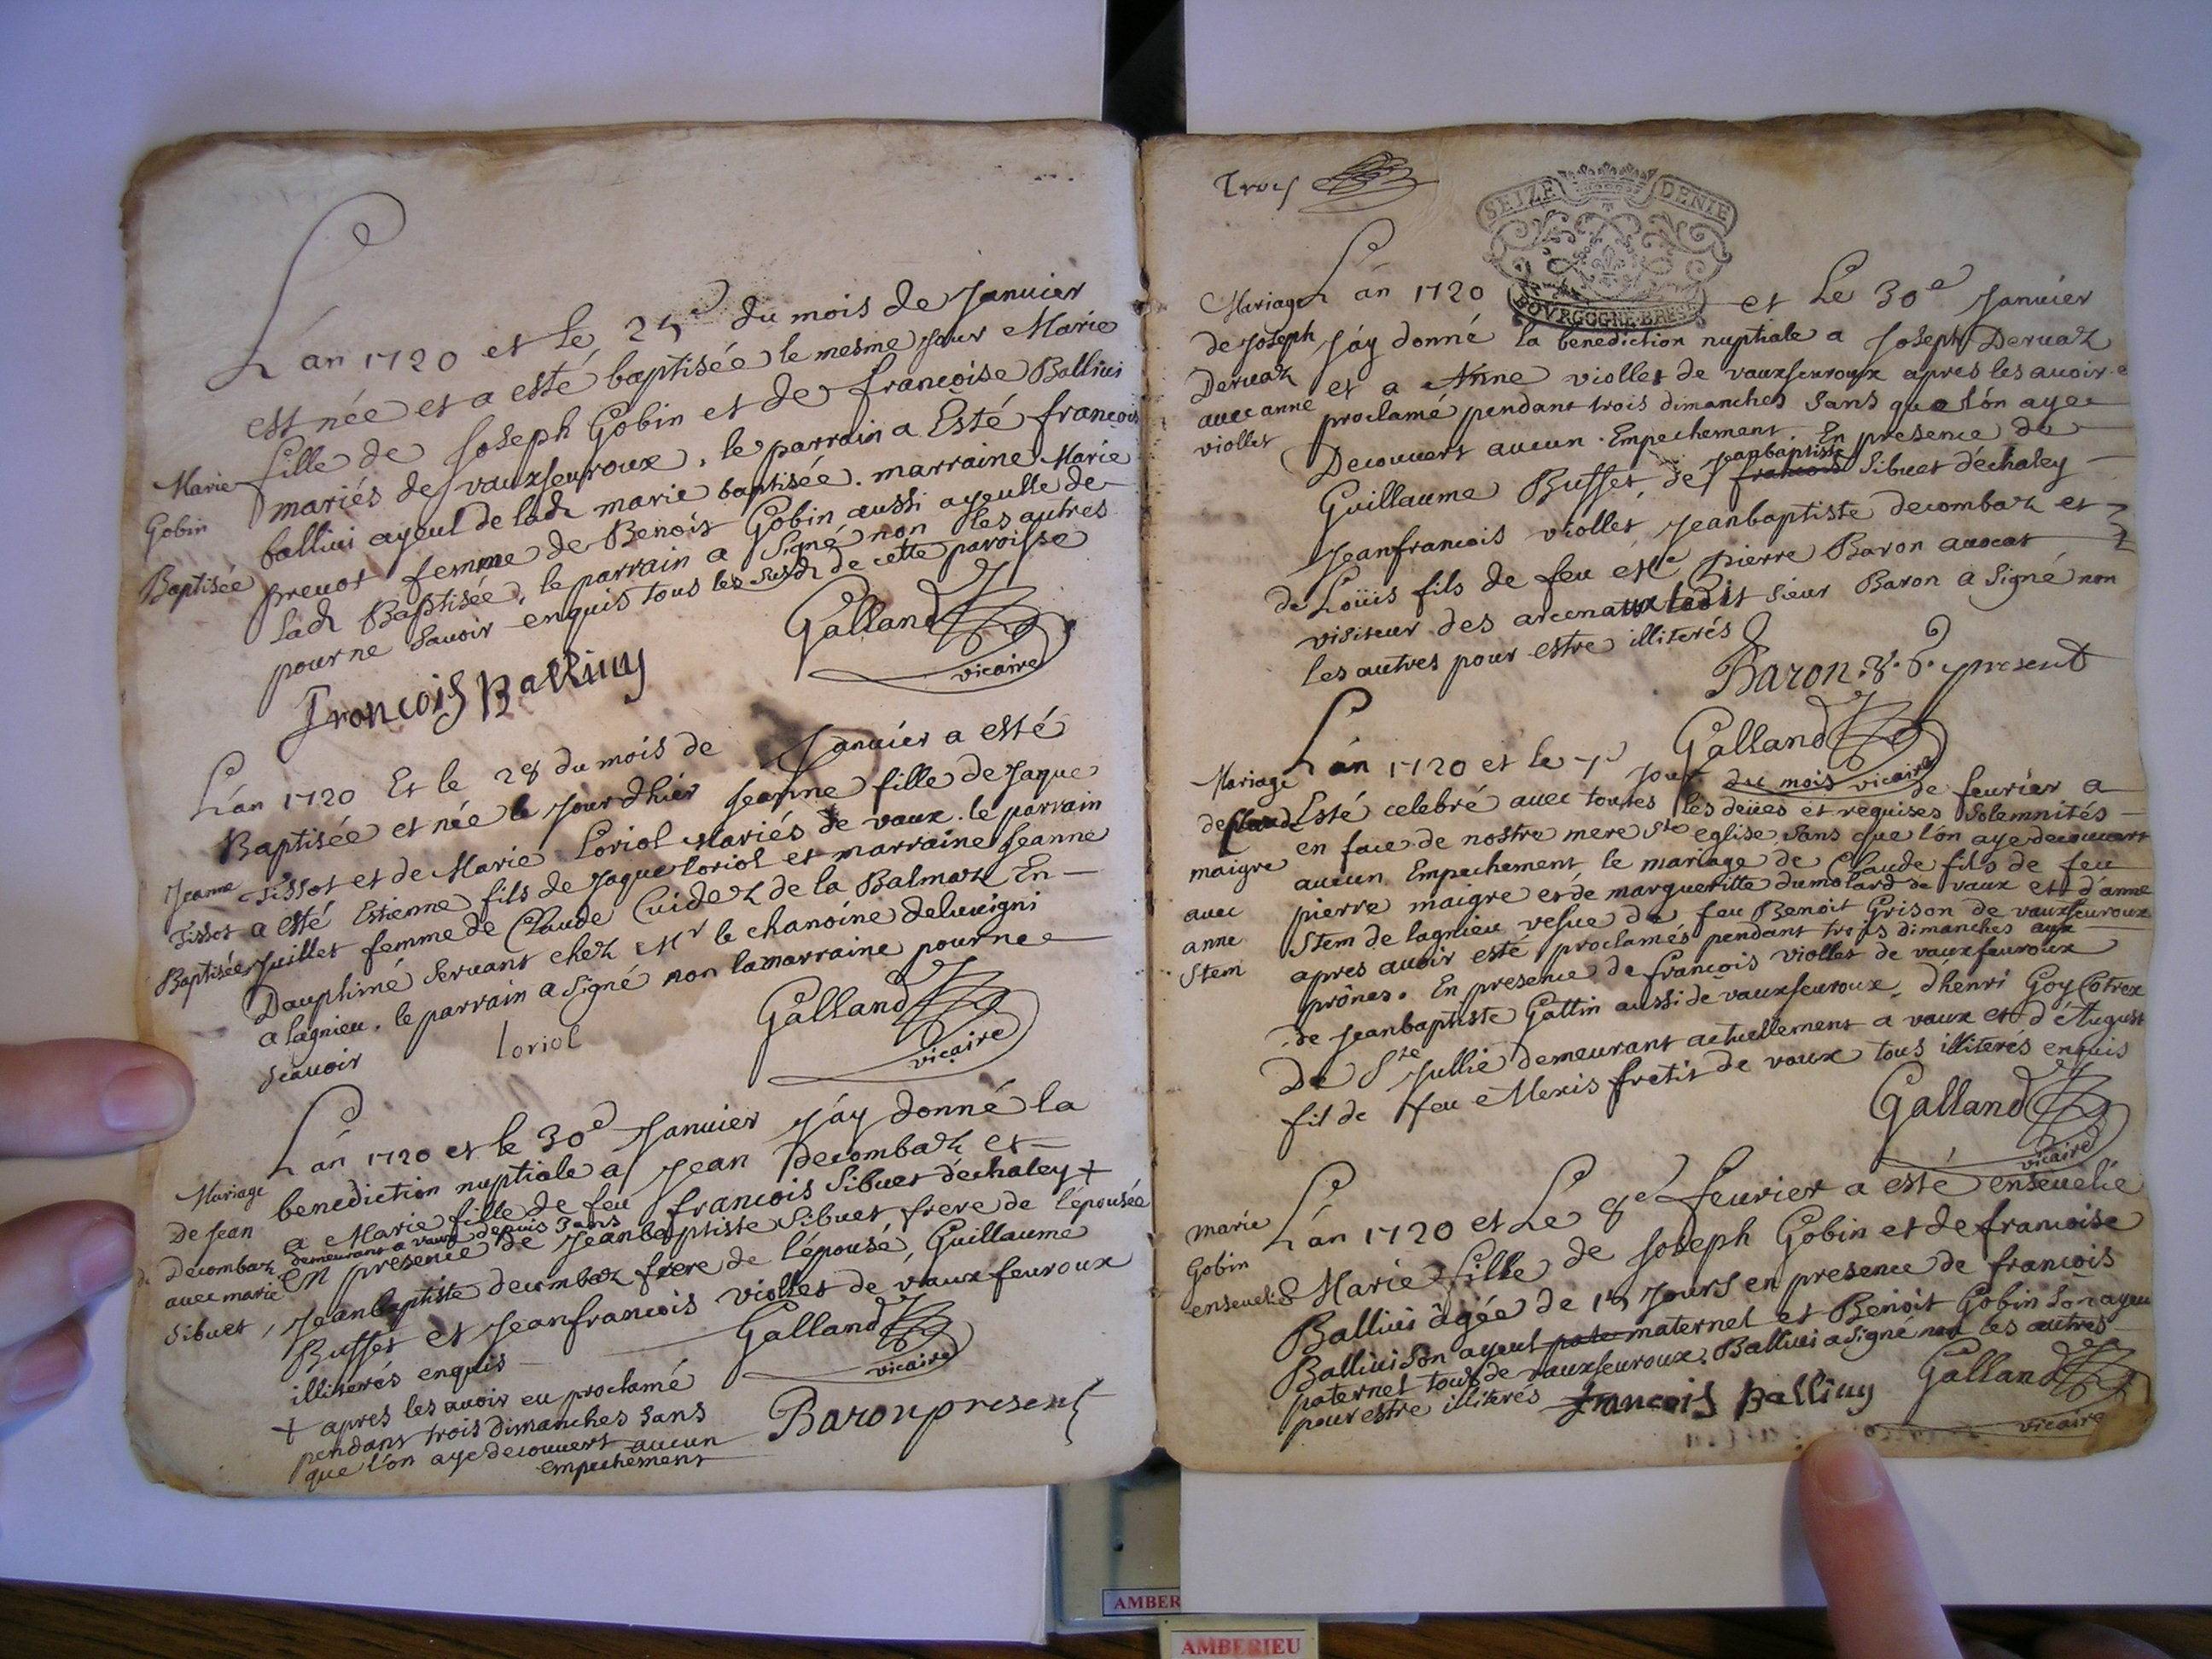 L'an 1720 et le 25e du mois de Janvier
est née et a esté baptisée le mesme jour Marie
fille de Joseph Gobin et de francoise Ballivi
mariés de vauxfevroux, le parrain a Esté francois
ballivi ayeul de ladt marie baptisée. marraine Marie
prevot femme de Benoit Gobin aussi ayeulle de
ladt Baptisée, le parrain a signé non les autres
pour ne Savoir enquis tous les susdt de cette paroisse
Marie
Gobin
Baptisée
Galland
vicaire
francois Balliuy
L'an 1720 Et le 28 du mois de Janvier a esté
Baptisée et née le jour dhier Jeanne fille de Jaque
Tissot et de Marie Loriol Mariés de vaux. le parrain
a esté Estienne fils de Jaque loriol et marraine Jeanne
Juillet femme de Claude Cuidet de la Balmat En
Dauphiné servant chez Mr le chanoine deluvigni
a lagnieu. le parrain a signé non la marraine pour ne
scavoir
Jeanne
Tissot
Baptisée
loriol
Galland
vicaire
L'an 1720 et le 30e Janvier j'ay donné la
benediction nuptiale a Jean Decombaz et
a Marie fille de feu francois Sibuet d'échaley +
demeurant a vaux depuis 3 ans
en presence de Jeanbaptiste Sibuet frere de l'épousée
Jeanbaptiste decombaz frere de l'épousé, Guillaume
Buffet et Jeanfrancois viollet de vauxfevroux
illiterés enquis
+ apres les avoir eu proclamé
pendant trois dimanches sans
que l'on aye decouvert aucun
empechement
Mariage
De Jean
Decombaz
avec marie
Sibuet
Galland
vicaire
Baron present
Trois
SEIZE DENIE
BOVRGOGNE BRESS
L'an 1720 et Le 30e Janvier
J'ay donné la benediction nuptiale a Joseph Dervaz
et a Anne viollet de vauxfevroux apres les avoir
proclamé pendant trois dimanches sans que l'on aye
Decouvert aucun Empechement. En presence de
Guillaume Buffet, de Jeanbaptiste francois Sibuet d'échaley
Jeanfrancois viollet, Jeanbaptiste decombaz et
de Loüis fils de feu Me pierre Baron avocat
visiteur des arcenaux ledit sieur Baron a signé non
les autres pour estre illiterés
Mariage
de Joseph
Dervaz
avec anne
viollet
Baron present
Galland
vicaire
L'an 1720 et le 7e jour du mois de fevrier a
Esté celebré avec toutes les deües et requises Solemnités
en face de nostre mere Ste eglise, sans que l'on aye decouvert
aucun Empechement le mariage de Claude fils de feu
pierre maigre et de margueritte dumolard de vaux et d'anne
Stem de lagnieu vefue de feu Benoit Grison de vauxfevroux
apres avoir esté proclamés pendant trois dimanches aux
prônes. En presence de francois viollet de vauxfevroux
de Jeanbaptiste Gattin aussi de vauxfevroux, d'henri Goy
De Ste Jullie demeurant actuellement a vaux et d'August
fil de feu Alexis fretit de vaux tous illiterés enquis
Mariage
de Claude
maigre
avec
anne
Stem
Galland
vicaire
L'an 1720 et Le 8e fevrier a esté ensevelie
Marie fille de Joseph Gobin et de francoise
Ballivi âgée de 15 jours en presence de francois
Ballivi son ayeul mater maternel et Benoit Gobin son ayeu
paternel tous de vauxfevroux. Ballivi a signé non les autres
pour estre illiterés
marie
Gobin
ensevelie
francois Balliuy
Galland
vicaire
AMBER
AMBERIEU